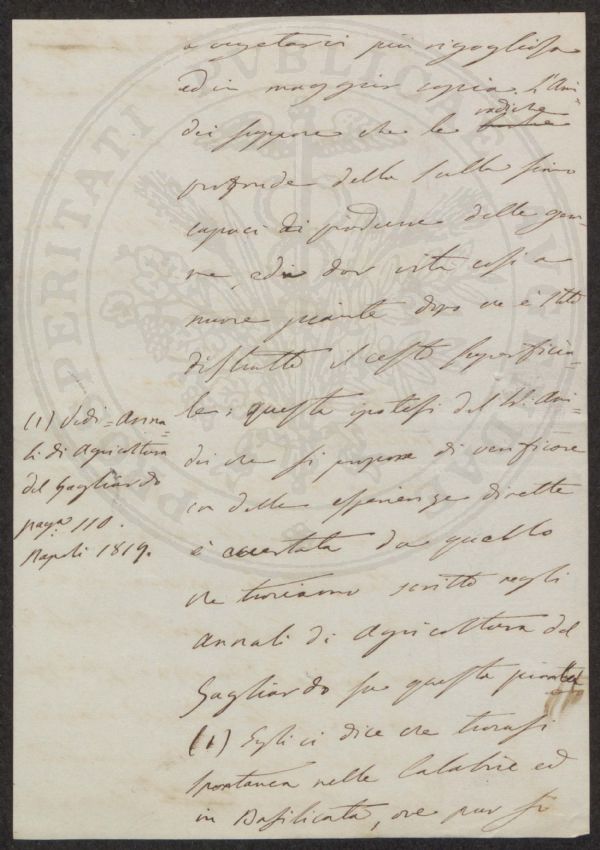 a vegetarvi più rigogliosa
ed in maggior copia. L'Ami=
dei suppone che le radiche
profonde della Sulla sieno
capaci di produrre delle gem-
me, e di dar vita così a
nuove piante dopo che è stato
distrutto il cesto superficia=
le; questa ipotesi del Sr. Ami=
dei che si propone di verificare
con delle esperienze dirette
è accertata da quello
che troviamo scritto negli
Annali di Agricoltura del
Gagliardo su questa pianta
(1) Egli ci dice che trovasi
spontanea nelle Calabrie ed
in Basilicata, ove pur si
(1) Vedi = Anna=
li di Agricoltura
del Gagliardo
paga. 110.
Napoli 1819.
PROSPERITATI PUBLICAE AUGENDAE